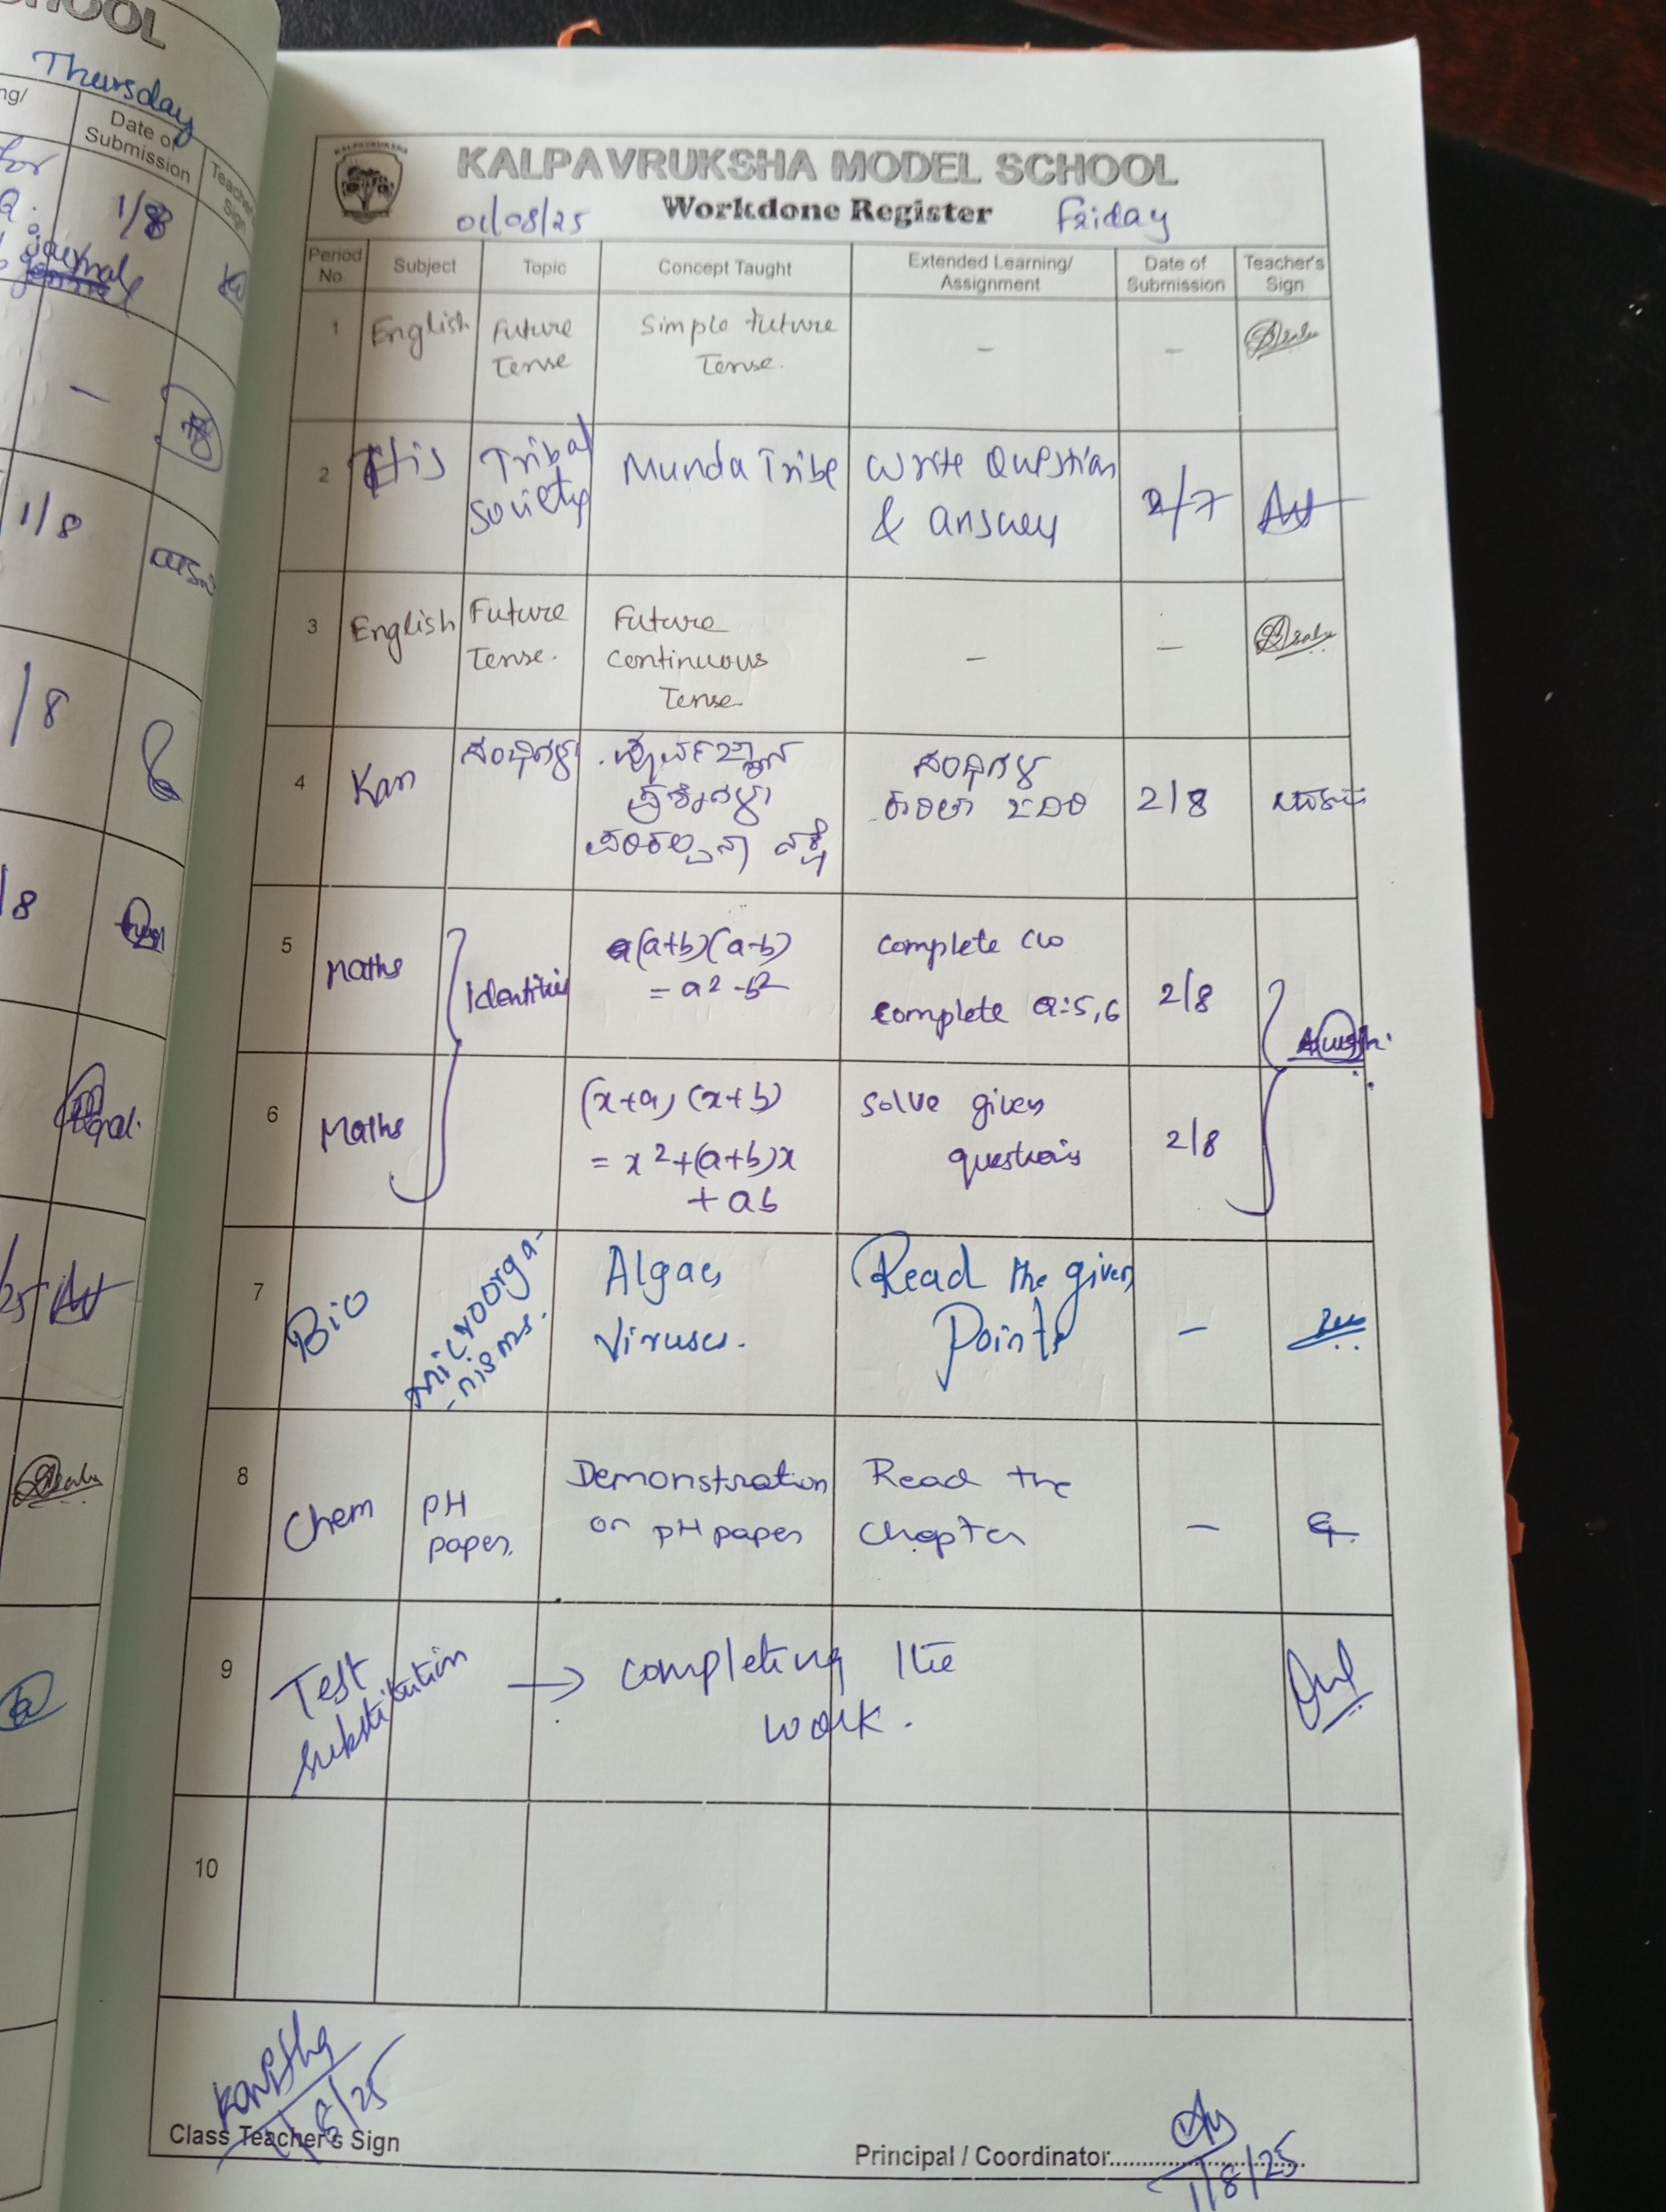 HOOL
Thursday
ng/
Date of
Submission
Teacher
Sign
for
Q.
1/8
journal
1/8
/8
/8
KALPAVRUKSHA
KALPAVRUKSHA MODEL SCHOOL
Workdone Register
01/08/25
Friday
Period No.
Subject
Topic
Concept Taught
Extended Learning/
Assignment
Date of
Submission
Teacher's
Sign
1
English
Future
Tense
Simple future
Tense.
-
-
2
His
Tribal
society
Munda Tribe
Write Question
& answer
2/7
3
English
Future
Tense.
Future
continuous
Tense
-
-
4
Kan
ಸಂಧಿಗಳು
ಪೂರ್ವಜ್ಞಾನ
ಪ್ರಶ್ನೆಗಳು
ಪರಿಕಲ್ಪನಾ ನಕ್ಷೆ
ಸಂಧಿಗಳ
ಕುರಿತು ಬರೆದಿರಿ
2/8
5
Maths
Identities
(a+b)(a-b)
= a2 - b2
complete CW
complete Q:5,6
2/8
6
Maths
(x+a) (x+b)
= x2+(a+b)x
+ ab
solve given
questions
2/8
7
Bio
microorga-
-nisms.
Algae,
Viruses.
Read the given
Points
-
8
Chem
pH
paper.
Demonstration
on pH paper
Read the
chapter
-
9
Test
substitution
→ completing the
work.
10
Kavitha
1/8/25
Class Teacher's Sign
Principal / Coordinator
1/8/25